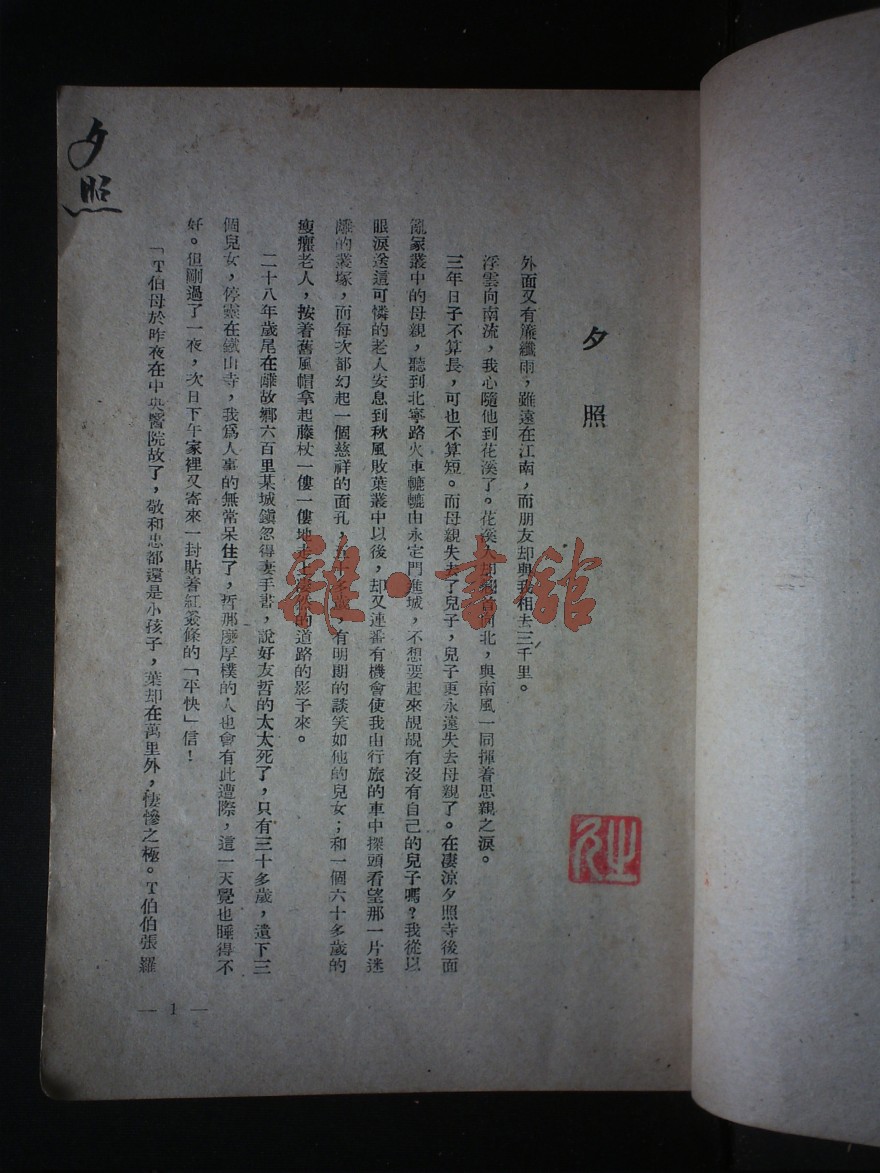 夕照
夕照
外面又有簾纖雨，雖遠在江南，而朋友却與我相去三千里。
浮雲向南流，我心隨他到花溪了。花溪人却翹首向北，與南風一同揮着思親之淚。
三年日子不算長，可也不算短。而母親失去了兒子，兒子更永遠失去母親了。在凄涼夕照寺後面
亂冢叢中的母親，聽到北寧路火車轆轆由永定門進城，不想要起來覘覘有沒有自己的兒子嗎？我從以
眼淚送這可憐的老人安息到秋風敗葉叢中以後，却又連番有機會使我由行旅的車中探頭看望那一片迷
離的叢塚，而每次都幻起一個慈祥的面孔，五十多歲，有明朗的談笑如他的兒女；和一個六十多歲的
瘦癯老人，按着舊風帽拿起藤杖一僂一僂地走上淒然的道路的影子來。
二十八年歲尾在離故鄉六百里某城鎮忽得妻手書，說好友哲的太太死了，只有三十多歲，遺下三
個兒女，停靈在鐵山寺，我爲人事的無常呆住了，哲那麼厚樸的人也會有此遭際，這一天覺也睡得不
好。但剛過了一夜，次日下午家裡又寄來一封貼着紅簽條的「平快」信！
「T伯母於昨夜在中央醫院故了，敬和忠都還是小孩子，葉却在萬里外，悽慘之極。T伯伯張羅
— 1 —
雜·書館